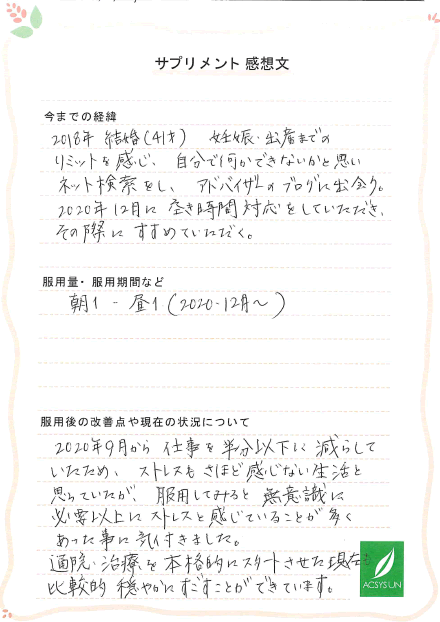 サプリメント 感想文
今までの経緯
2018年 結婚(41才) 妊娠・出産までの
リミットを感じ、自分で何かできないかと思い
ネット検索をし、アドバイザーのブログに出会う。
2020年12月に 空き時間対応をしていただき、
その際に すすめていただく。
服用量・服用期間など
朝1 - 昼1 (2020.12月〜)
服用後の改善点や現在の状況について
2020年9月から 仕事を 半分以下に 減らして
いたため、ストレスもさほど感じない生活と
思っていたが、服用してみると 無意識に
必要以上にストレスと感じていることが多く
あった事に気付きました。
通院・治療を本格的にスタートさせた現在も
比較的 穏やかにすごすことができています。
ACSYSUN